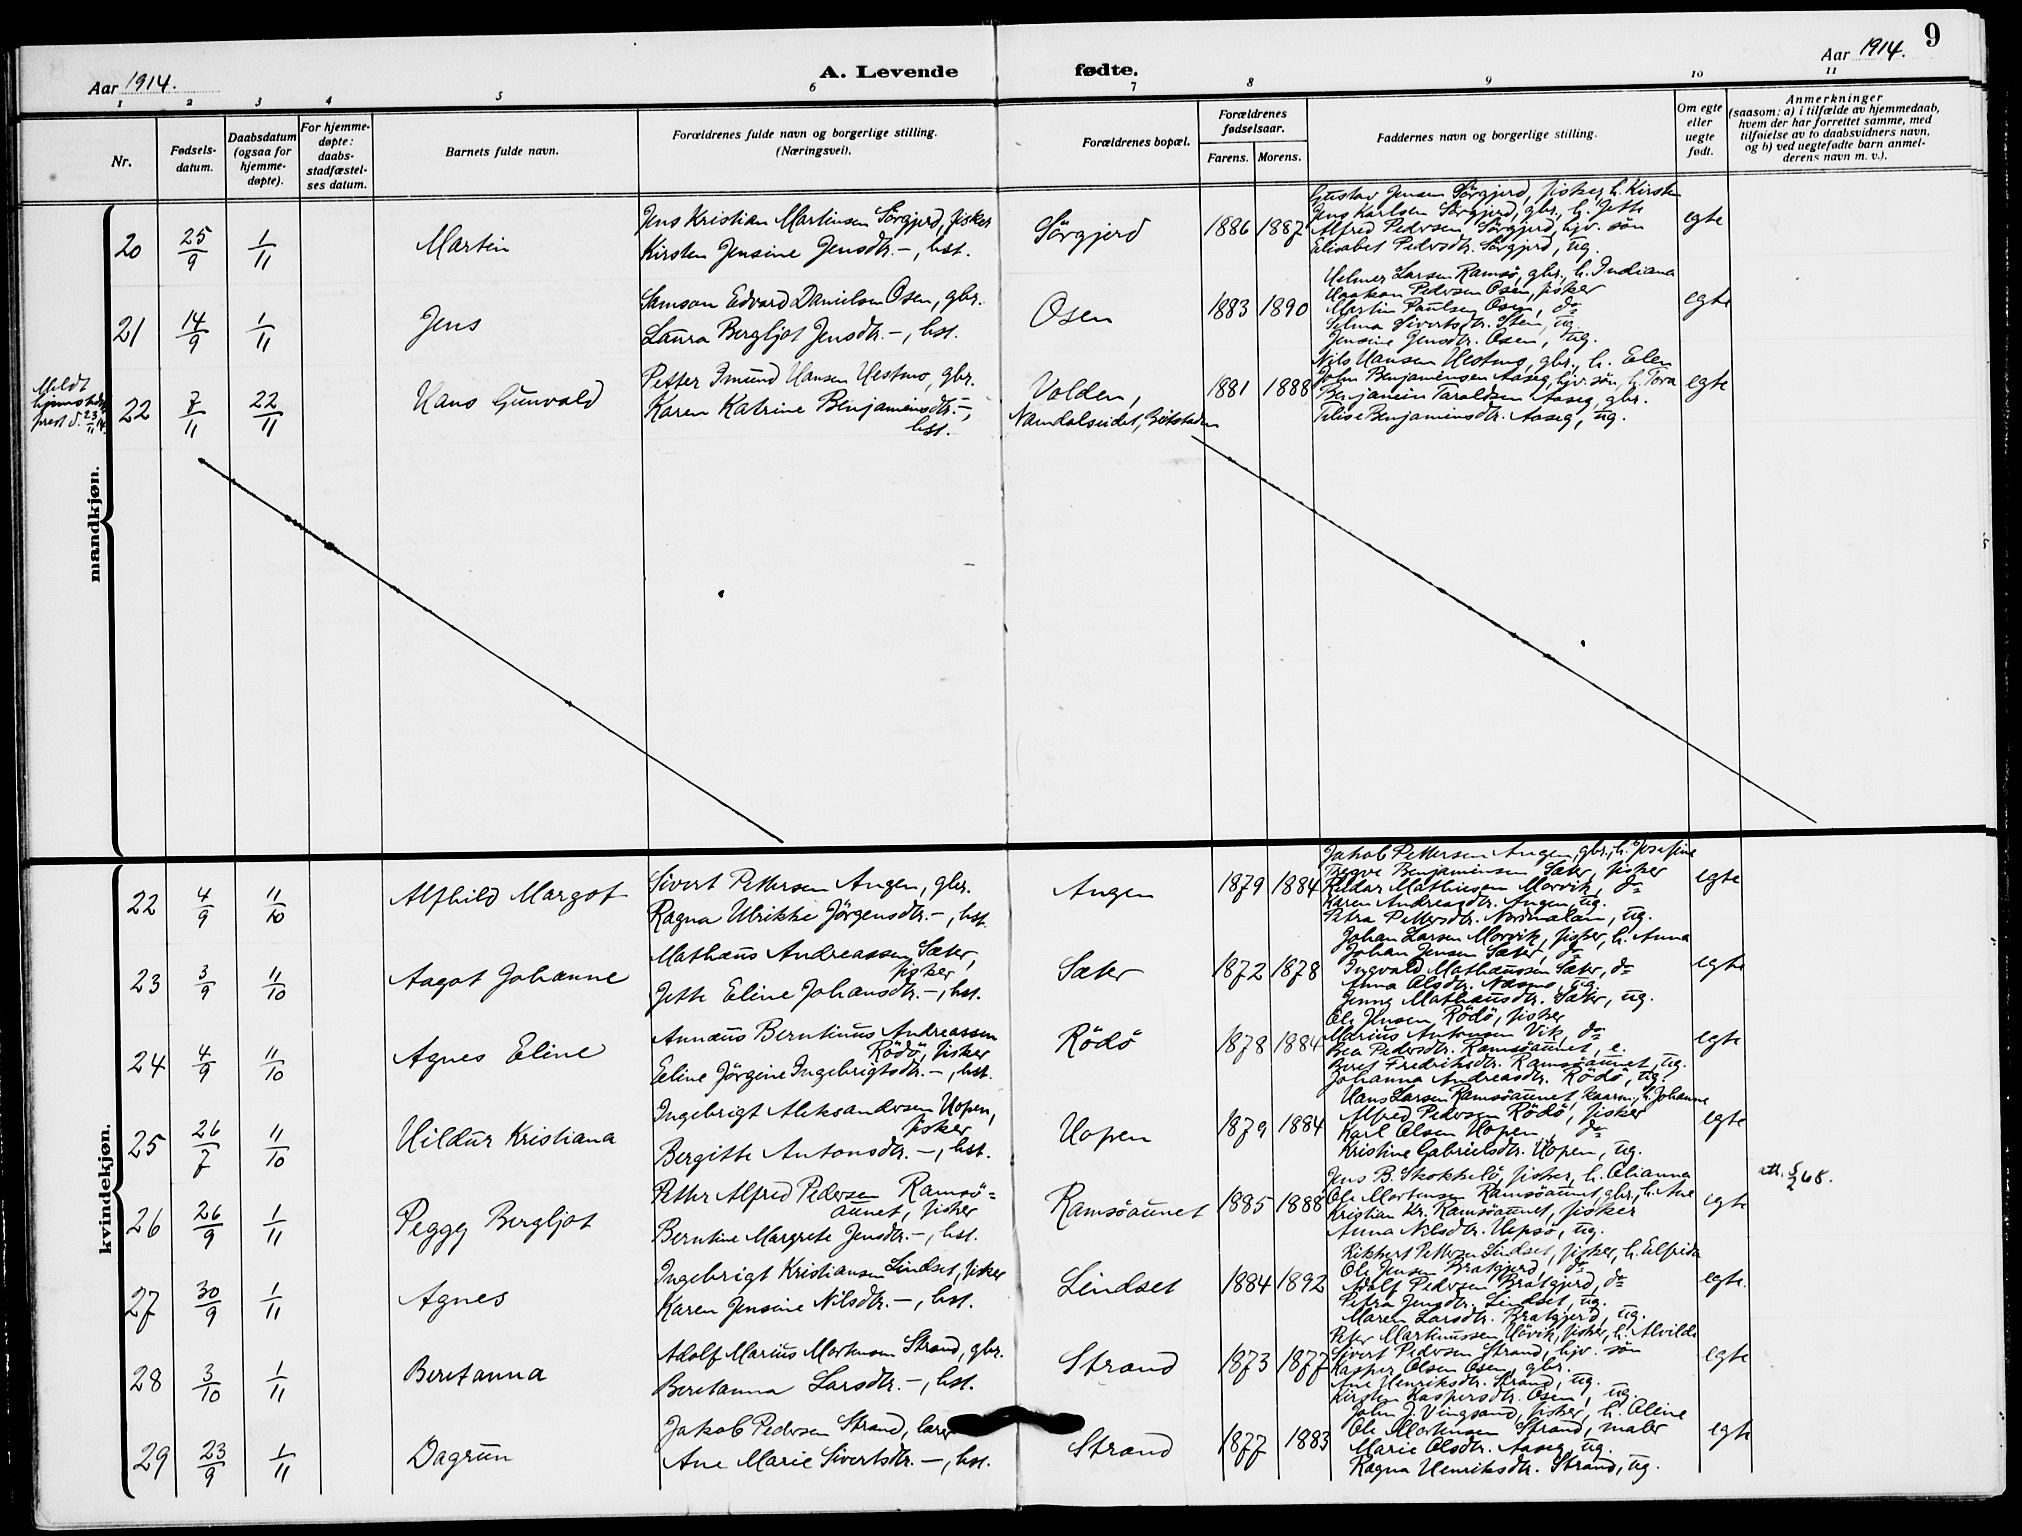 Aar 1914.
A. Levende fødte.
Aar 1914. 9
1 2 3 4 5 6 7 8 9 10 11
Nr.
Fødsels-
datum.
Daabsdatum
(ogsaa for
hjemme-
døpte).
For hjemme-
døpte:
daabs-
stadfæstel-
ses datum.
Barnets fulde navn.
Forældrenes fulde navn og borgerlige stilling.
(Næringsvei).
Forældrenes bopæl.
Forældrenes
fødselsaar.
Farens. Morens.
Faddernes navn og borgerlige stilling.
Om egte
eller
uegte
født.
Anmerkninger
(saasom: a) i tilfælde av hjemmedaab,
hvem der har forrettet samme, med
tilføielse av to daabsvidners navn,
og b) ved uegtefødte barn anmel-
derens navn m. v.).
mandkjøn.
20 25/9 1/11 Martin
Jens Kristian Martinsen Sørgjerd, fisker
Kirsten Jensine Jensdtr. –, hst.
Sörgjerd 1886 1887
Gustav Jensen Sørgjerd, fisker, h. Kirsten
Jens Karlsen Sørgjerd, gbr., h. Jette
Alfred Pedersen Sørgjerd, hjv. søn
Elisabet Pedersdtr. Sørgjerd, ug.
egte
21 14/9 1/11 Jens
Samson Edvard Danielsen Osen, gbr.
Laura Bergljot Jensdtr. –, hst.
Osen 1883 1890
Helmer Larsen Ramsö, gbr., h. Indiana
Haakon Pedersen Osen, fisker
Martin Paulsen Osen, do
Selma Sivertsdtr. Sten, ug.
Jensine Jensdtr. Osen, ug.
egte
Meldt
hjemsteds
prest d. 23/11 14.
22 7/11 22/11 Hans Gunvald
Petter Imund Hansen Hestmo, gbr.
Karen Katrine Benjaminsdtr. –,
hst.
Volden,
Namdalseidet, Beitstaden
1881 1888
Nils Hansen Hestmo, gbr., h. Elen
John Benjaminsen Aaseg, hjv. søn, h. Tora
Benjamin Taraldsen Aaseg, gbr.
Telise Benjaminsdtr. Aaseg, ug.
egte
kvindekjøn.
22 4/9 11/10 Alfhild Margot
Sivert Pettersen Angen, gbr.
Ragna Ulrikke Jörgensdtr. –, hst.
Angen 1879 1884
Jakob Pettersen Angen, gbr., h. Josefine
Tryggve Benjaminsen Sæter, fisker
Reidar Mathiesen Morvik, do
Karen Andreasdtr. Angen, ug.
Petra Pettersdtr. Nordmelan, ug.
egte
23 3/9 11/10 Aagot Johanne
Mathæus Andreassen Sæter,
fisker
Jette Eline Johansdtr. –, hst.
Sæter 1872 1878
Johan Larsen Morvik, fisker, h. Anna
Johan Jensen Sæter, do
Ingvald Mathæussen Sæter, do
Anna Olsdtr. Næsmo, ug.
Jenny Mathæusdtr. Sæter, ug.
egte
24 4/9 11/10 Agnes Eline
Annæus Berntinus Andreassen
Rödö, fisker
Eline Jörgine Ingebrigtsdtr. –, hst.
Rödö 1878 1884
Ole Jensen Rödö, fisker
Marius Antonsen Vik, do
Bea Pedersdtr. Ramsöaunet, e.
Beret Fredriksdtr. Ramsöaunet, ug.
Johanna Andreasdtr. Rödö, ug.
egte
25 26/7 11/10 Hildur Kristiana
Ingebrigt Aleksandersen Hopen,
fisker
Bergitte Antonsdtr. –, hst.
Hopen 1879 1884
Hans Larsen Ramsöaunet, kaarm., h. Johanne
Alfred Pedersen Rödö, fisker
Karl Olsen Hopen, do
Kristine Gabrielsdtr. Hopen, ug.
egte
26 26/9 1/11 Peggy Bergljot
Petter Alfred Pedersen Ramsö=
aunet, fisker
Berntine Margrete Jensdtr. –, hst.
Ramsöaunet 1885 1888
Jens B. Skokkelö, fisker, h. Olianna
Ole Mortensen Ramsöaunet, gbr., h. Ane
Kristian Kr. Ramsöaunet, fisker
Anna Nilsdtr. Hepsö, ug.
egte
att. 5/2 68.
27 30/9 1/11 Agnes
Ingebrigt Kristiansen Lindset, fisker
Karen Jensine Nilsdtr. –, hst.
Lindset 1884 1892
Rikhert Pettersen Lindset, fisker, h. Elfrida
Ole Jensen Bratgjerd, do
Adolf Pedersen Bratgjerd, do
Petra Jensdtr. Lindset, ug.
Maren Larsdtr. Bratgjerd, ug.
egte.
28 3/10 1/11 Beretanna
Adolf Marius Mortensen Strand, gbr.
Beretanna Larsdtr. –, hst.
Strand 1873 1877
Peter Martinussen Hövik, fisker, h. Alvilde
Sivert Pedersen Strand, hjv. søn
Kasper Olsen Osen, gbr.
Ane Henriksdtr. Strand, ug.
Kirsten Kaspersdtr. Osen, ug.
egte
29 23/9 1/11 Dagrun
Jakob Pedersen Strand, lærer
Ane Marie Sivertsdtr. –, hst.
Strand 1877 1883
John J. Vingsand, fisker, h. Oline
Ole Mortensen Strand, maler
Marie Olsdtr. Aaseg, ug.
Ragna Henriksdtr. Strand, ug.
egte